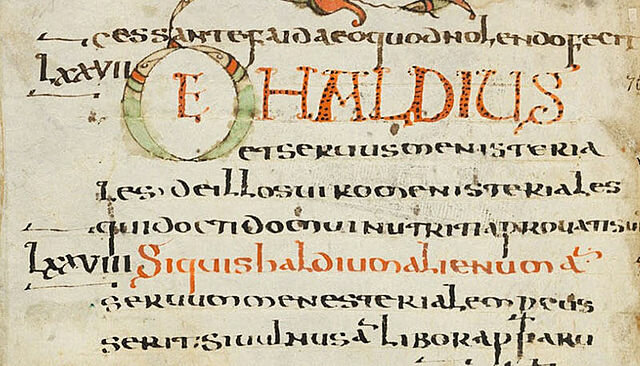 cessante faida eo quod nolendo fecit
Lxxvii DE HALDIUS
et seruus menisteria
les; de illos uiro menisteriales
qui docti domui nutriti aprouati su
Lxxviii Siquis haldium alienum a
seruum menesterialem percus
serit; si uulnus a libor apparu